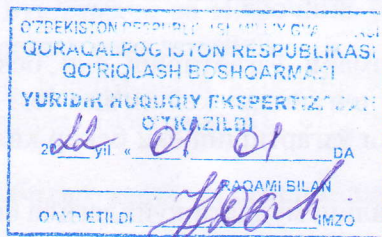 O'ZBEKISTON RESPUBLIKASI MILLIY
QORAQALPOG'ISTON RESPUBLIKASI
QO'RIQLASH BOSHQARMASI
YURIDIK HUQUQIY EKSPERTIZADAN
O'TKAZILDI
2022 yil. « 01 01 DA
RAQAMI BILAN
QAYD ETILDI IMZO